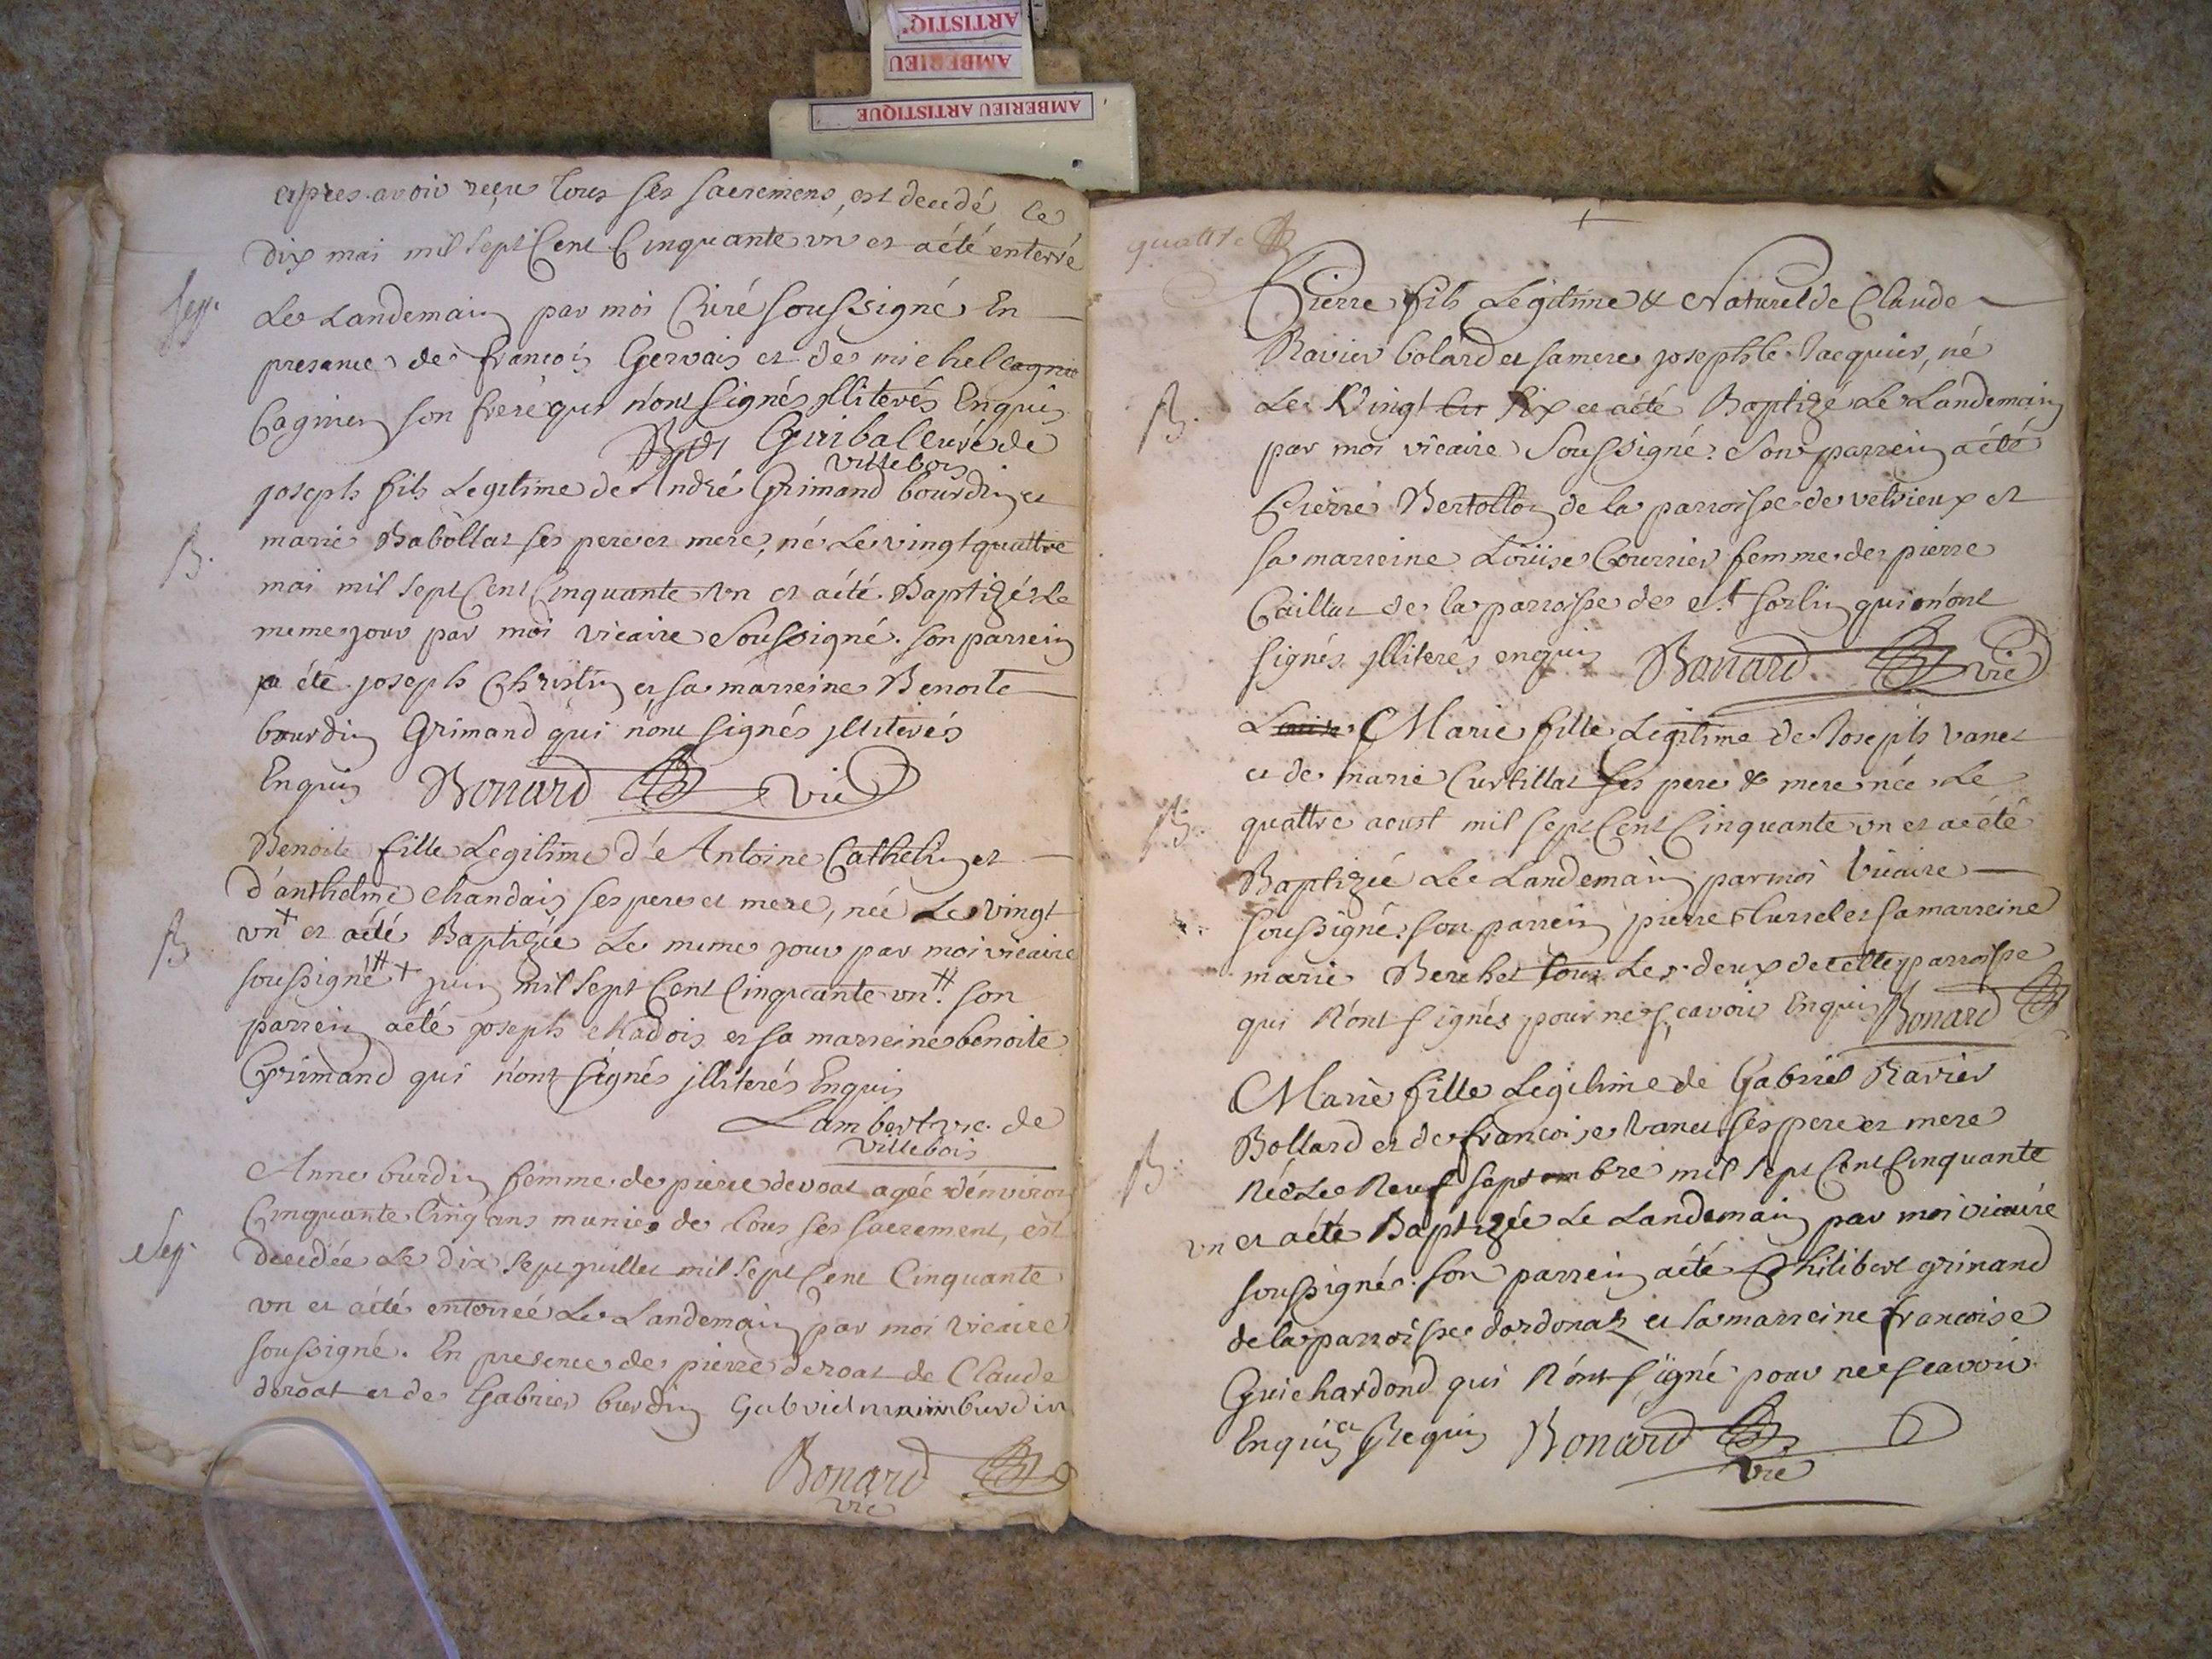 ARTISTIQ
AMBERIEU
AMBERIEU ARTISTIQUE
apres avoir reçu tous ses sacremens, est decedé le
dix mai mil sept Cent Cinquante un et a été enterré
Sep.
Le Landemain par moi Curé soussigné En
presence de francois Gervais et de michel
Caginer son frere qui n'ont signés jlliterés Enquis
Guibal curé de
villebois
joseph fils Legitime de André Grimand bourdin et
B.
marie Babollat ses pere et mere, né Le vingt quattre
mai mil sept Cent Cinquante un et a été Baptizé Le
meme jour par moi vicaire Soussigné. son parrein
a été joseph Christin et sa marreine Benoite
bourdin Grimand qui n'ont signés jlliterés
Enquis Bonard vic
Benoite fille Legitime d'Antoine Cathelin et
d'anthelme Chandais ses pere et mere, née Le vingt
B
un+ et a été Baptizée Le meme jour par moi vicaire
soussigné # + juin mil sept Cent Cinquante un #. son
parrein a été joseph Chadois et sa marreine benoite
Grimand qui n'ont signés jlliterés Enquis
Lambert vic. de
villebois
Anne burdin femme de pierre deroat agée d'environ
Cinquante Cinq ans munie de tous ses sacrement, est
Sep.
decedée Le dix sept juillet mil sept Cent Cinquante
un et a été enterrée Le Landemain par moi vicaire
soussigné. En presence de pierre deroat de Claude
deroat et de Gabriel burdin Gabriel burdin
Bonard
vic
quattre
+
Pierre fils Legitime & Naturel de Claude
Ravier bolard et sa mere josephte Jacquier, né
B.
Le Vingt six et a été Baptizé Le Landemain
par moi vicaire Soussigné. Son parrein a été
Pierre Bertollon de la parroisse de velvieux et
sa marreine Louise Courrier femme de pierre
Caillat de la parroisse de st sorlin qui n'ont
signés jlliterés enquis Bonard vic
Louise Marie fille Legitime de Joseph vanet
et de marie Curtillat ses pere & mere née Le
B.
quattre aoust mil sept Cent Cinquante un et a été
Baptizée Le Landemain par moi vicaire
soussigné. son parrein pierre turrel et sa marreine
marie Berchet tous Les deux de cette parroisse
qui n'ont signés pour ne sçavoir Enquis Bonard
Marie fille Legitime de Gabriel Ravier
Bollard et de francoise vanet ses pere et mere
B.
Née Le Neuf septembre mil sept Cent Cinquante
un et a été Baptizée Le Landemain par moi vicaire
soussigné. son parrein a été Philibert grimand
de la parroisse dordonaz et sa marreine francoise
Guichardond qui n'ont signé pour ne scavoir
Enquis et Requis Bonard
vic